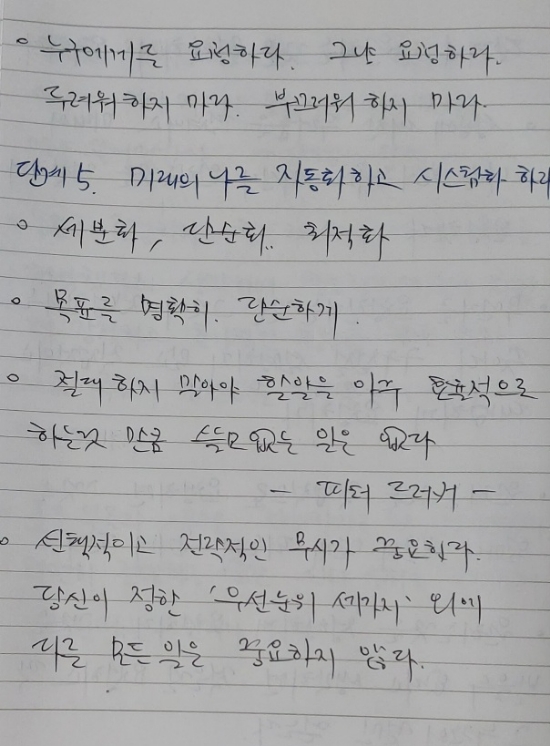 누구에게든 요청하라. 그냥 요청하라.
두려워하지 마라. 부끄러워 하지 마라.
단계 5. 미래의 나를 자동화하고 시스템화 하라
세분화, 단순화.. 최적화
목표를 명확히. 단순하게.
절대 하지 말아야 할일을 아주 효율적으로
하는것 만큼 쓸모없는 일은 없다
- 피터 드러커 -
선택적이고 전략적인 무시가 중요하다.
당신이 정한 '우선순위 세가지' 외에
다른 모든 일은 중요하지 않다.